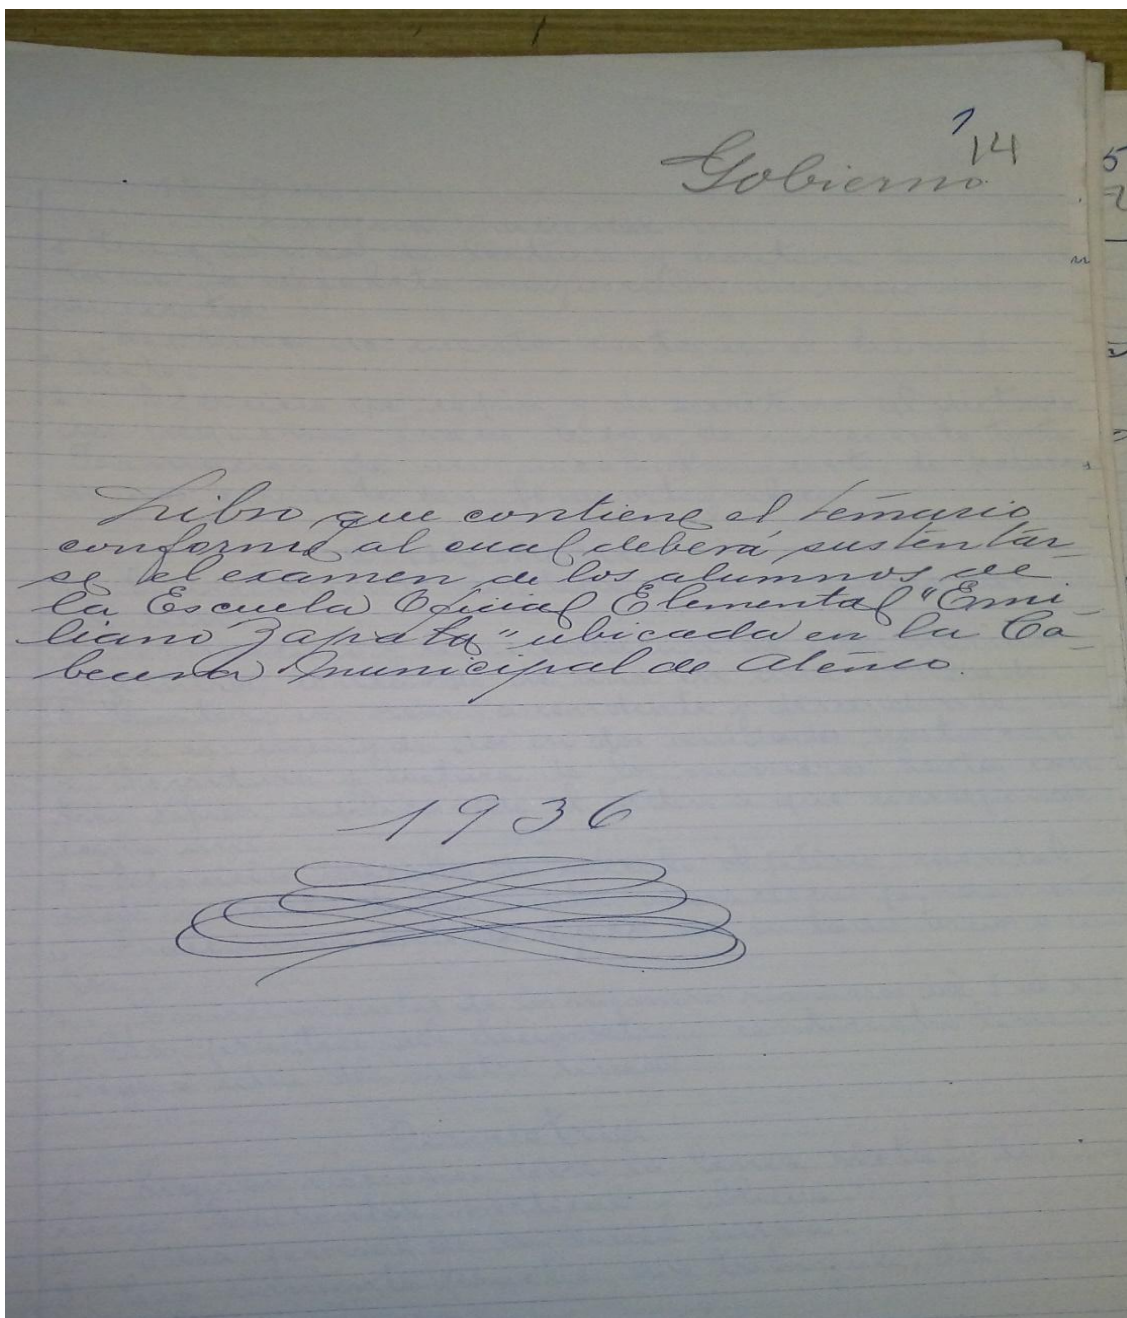 14
Gobierno
Libro que contiene el temario
conforme al cual deberá sustentar-
se el examen de los alumnos de
la Escuela Oficial Elemental "Emi-
liano Zapata" ubicada en la Ca-
becera municipal de Atenco.
1936